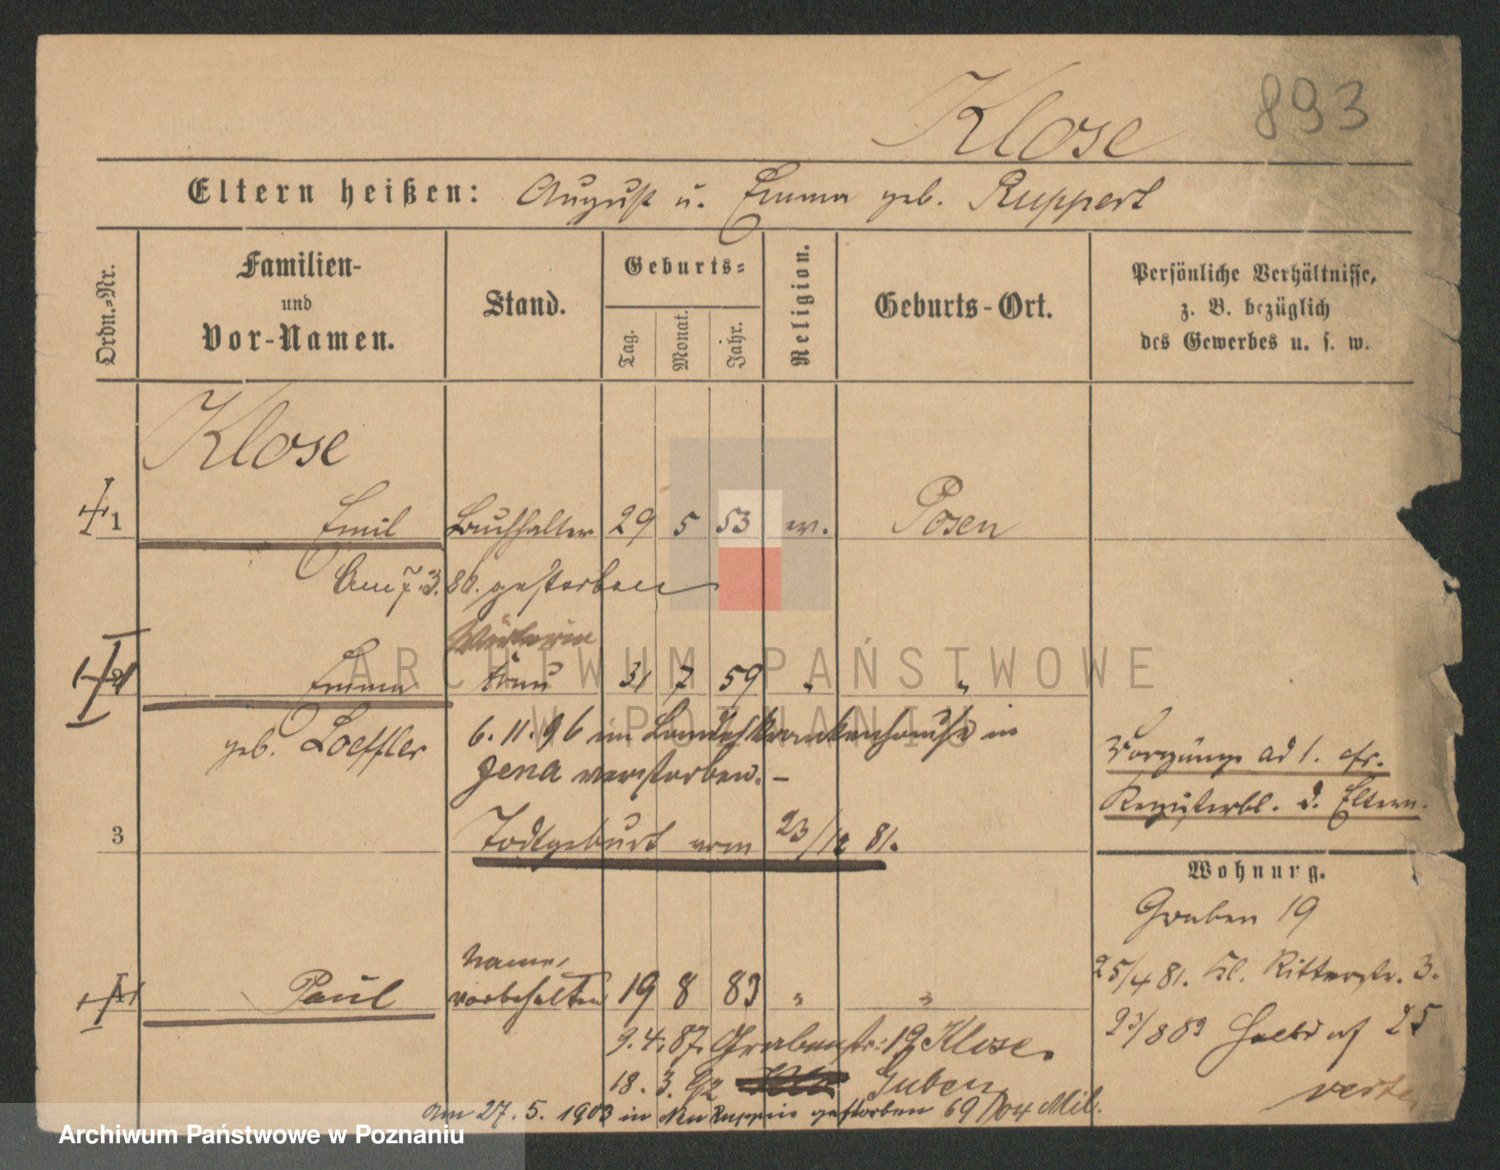 Klose 893
Eltern heißen: August u. Emma geb. Ruppert
Ordn.-Nr.
Familien-
und
Vor-Namen.
Stand.
Geburts-
Tag.
Monat.
Jahr.
Religion.
Geburts-Ort.
Persönliche Verhältnisse,
z. B. bezüglich
des Gewerbes u. s. w.
Klose
1 Emil Buchhalter 29 5 53 ev. Posen
Am 7.3.86. gestorben
Wärterin
Emma Frau 31 7 59 " "
geb. Loeffler 6.11.96 im Landeskrankenhause in
Jena verstorben. –
Vorgänge ad 1. cfr.
Registerbl. d. Eltern.
3 Todtgeburt vom 23/12 81.
Wohnung.
Graben 19
25/4 81. Kl. Ritterstr. 3.
Name,
Paul vorbehalten 19 8 83 " "
23/8 83 Halbdorf 25
9.4.87. Grabenstr. 19 Klose.
18.3.92 Guben
verte
Am 27.5.1903 in Neu Ruppin gestorben 69/04 Mil.
ARCHIWUM PAŃSTWOWE
W POZNANIU
Archiwum Państwowe w Poznaniu